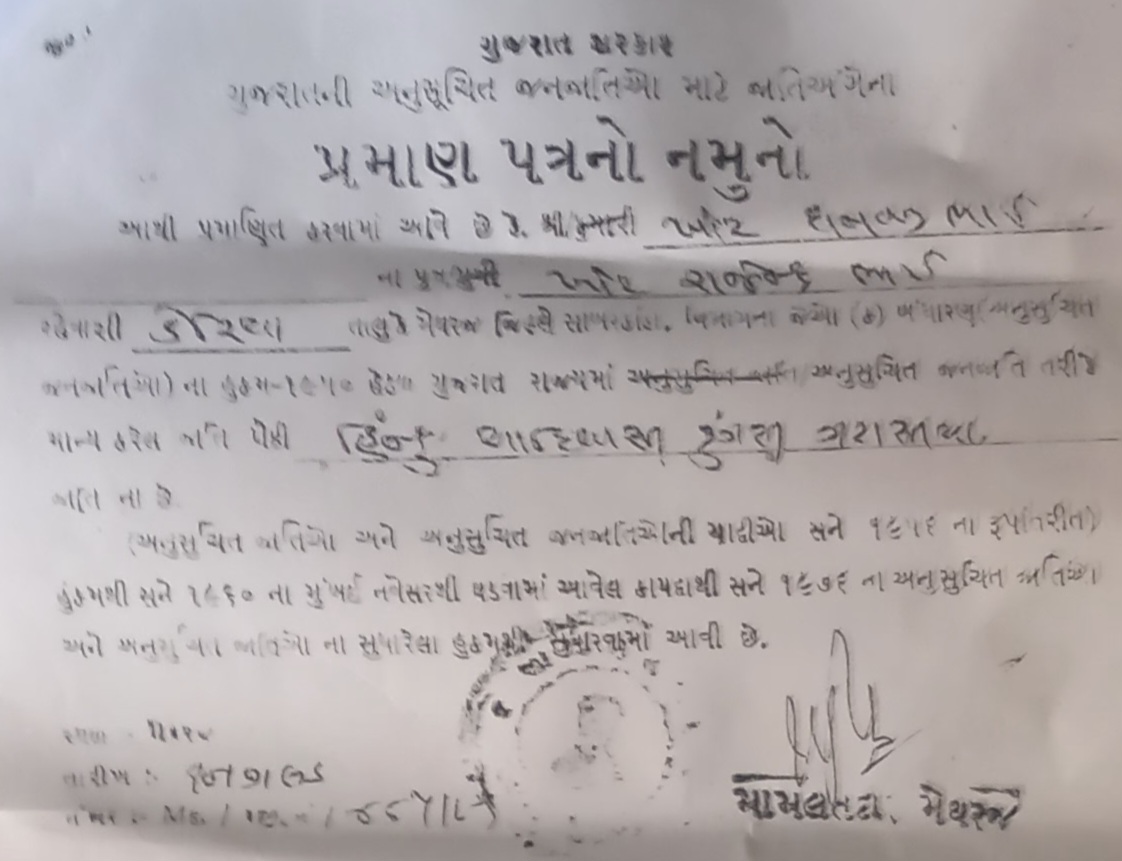 ગુજરાત સરકાર
ગુજરાતની અનુસૂચિત જનજાતિઓ માટે જાતિઅંગેના
પ્રમાણ પત્રનો નમુનો
આથી પ્રમાણિત કરવામાં આવે છે કે. શ્રી/કુમારી ભાઈ
ના પુત્ર/પુત્રી રાજેન્દ્ર ભાઈ
રહેવાશી તાલુકે મેઘરજ જિલ્લે સાબરકાંઠા. વિભાગના જેઓ (ક) બંધારણ (અનુસુચિત
જનજાતિઓ) ના હુકમ-૧૯૫૦ હેઠળ ગુજરાત રાજ્યમાં અનુસુચિત જનજાતિ તરીકે
માન્ય કરેલ જાતિ પૈકી હિન્દુ ડુંગરી ગરાસીયા
જાતિ ના છે
(અનુસુચિત જાતિઓ અને અનુસુચિત જનજાતિઓની યાદીઓ સને ૧૯૫૬ ના રૂપાંતરીત)
હુકમથી સને ૧૯૬૦ ના મુંબઈ નવેસરથી ઘડવામાં આવેલ કાયદાથી સને ૧૯૭૬ ના અનુસુચિત જાતિઓ
અને અનુસુચિત જાતિઓ ના સુધારેલા હુકમથી સુધારવામાં આવી છે.
તારીખ :
નંબર : MS. /
મામલતદાર, મેઘરજ